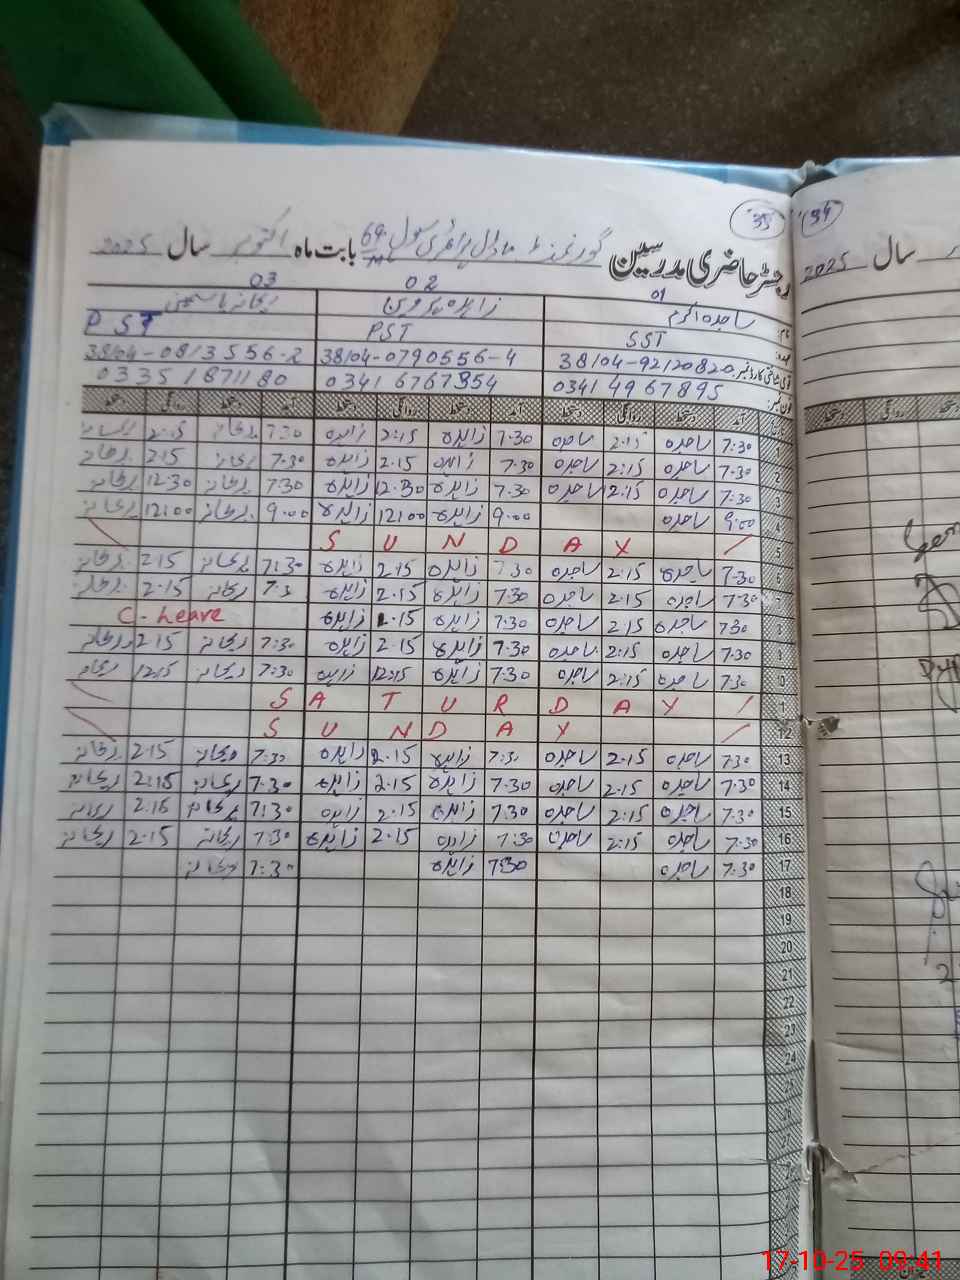 35
34
رجسٹر حاضری مدرسین گورنمنٹ ماڈل پرائمری سکول 69/M بابت ماہ اکتوبر سال 2025
سال 2025
01 02 03
نام: ساجدہ اکرم زاہدہ پروین ریحانہ یاسمین
عہدہ: SST PST PST
قومی شناختی کارڈ نمبر: 38104-9212082-0 38104-0790556-4 38104-0813556-2
فون نمبر: 0341 4967895 0341 6767354 0335 1871180
آمد دستخط روانگی دستخط آمد دستخط روانگی دستخط آمد دستخط روانگی دستخط
1 7:30 ساجدہ 2:15 ساجدہ 7.30 زاہدہ 2:15 زاہدہ 7.30 ریحانہ 2.15 ریحانہ
2 7:30 ساجدہ 2:15 ساجدہ 7.30 زاہدہ 2.15 زاہدہ 7.30 ریحانہ 2.15 ریحانہ
3 7:30 ساجدہ 2:15 ساجدہ 7.30 زاہدہ 12.30 زاہدہ 7:30 ریحانہ 12:30 ریحانہ
4 9:00 ساجدہ 9.00 زاہدہ 12:00 زاہدہ 9.00 ریحانہ 12:00 ریحانہ
5 SUNDAY
6 7:30 ساجدہ 2:15 ساجدہ 7.30 زاہدہ 2.15 زاہدہ 7:30 ریحانہ 2.15 ریحانہ
7 7:30 ساجدہ 2.15 ساجدہ 7.30 زاہدہ 2.15 زاہدہ 7:3 ریحانہ 2.15 ریحانہ
8 7:30 ساجدہ 2:15 ساجدہ 7:30 زاہدہ 2.15 زاہدہ C-Leave
9 7:30 ساجدہ 2:15 ساجدہ 7:30 زاہدہ 2.15 زاہدہ 7:30 ریحانہ 2.15 ریحانہ
10 7:30 ساجدہ 2:15 ساجدہ 7:30 زاہدہ 12:15 زاہدہ 7:30 ریحانہ 12:15 ریحانہ
11 SATURDAY
12 SUNDAY
13 7:30 ساجدہ 2:15 ساجدہ 7:30 زاہدہ 2.15 زاہدہ 7:30 ریحانہ 2.15 ریحانہ
14 7:30 ساجدہ 2.15 ساجدہ 7:30 زاہدہ 2.15 زاہدہ 7:30 ریحانہ 2:15 ریحانہ
15 7:30 ساجدہ 2:15 ساجدہ 7:30 زاہدہ 2.15 زاہدہ 7:30 ریحانہ 2.15 ریحانہ
16 7:30 ساجدہ 2:15 ساجدہ 7:30 زاہدہ 2.15 زاہدہ 7:30 ریحانہ 2.15 ریحانہ
17 7:30 ساجدہ 7:30 زاہدہ 7:30 ریحانہ
18
19
20
21
22
23
24
25
26
27
17-10-25 09:41